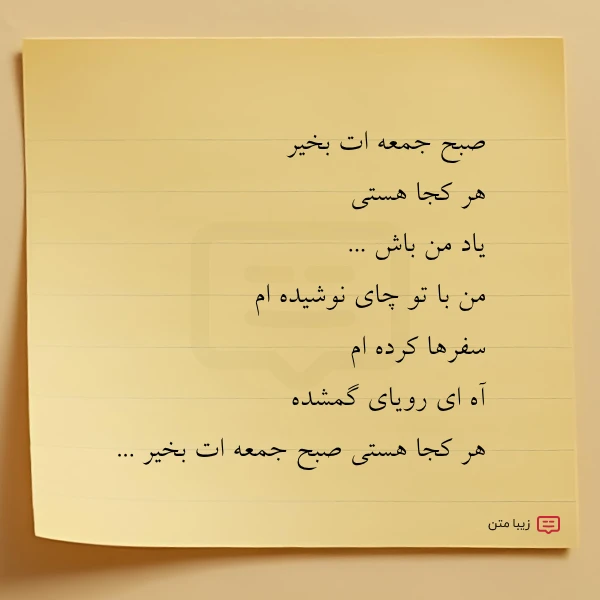 صبح جمعه ات بخیر
هر کجا هستی
یاد من باش ...
من با تو چای نوشیده ام
سفرها کرده ام
آه ای رویای گمشده
هر کجا هستی صبح جمعه ات بخیر ...
زیبا متن